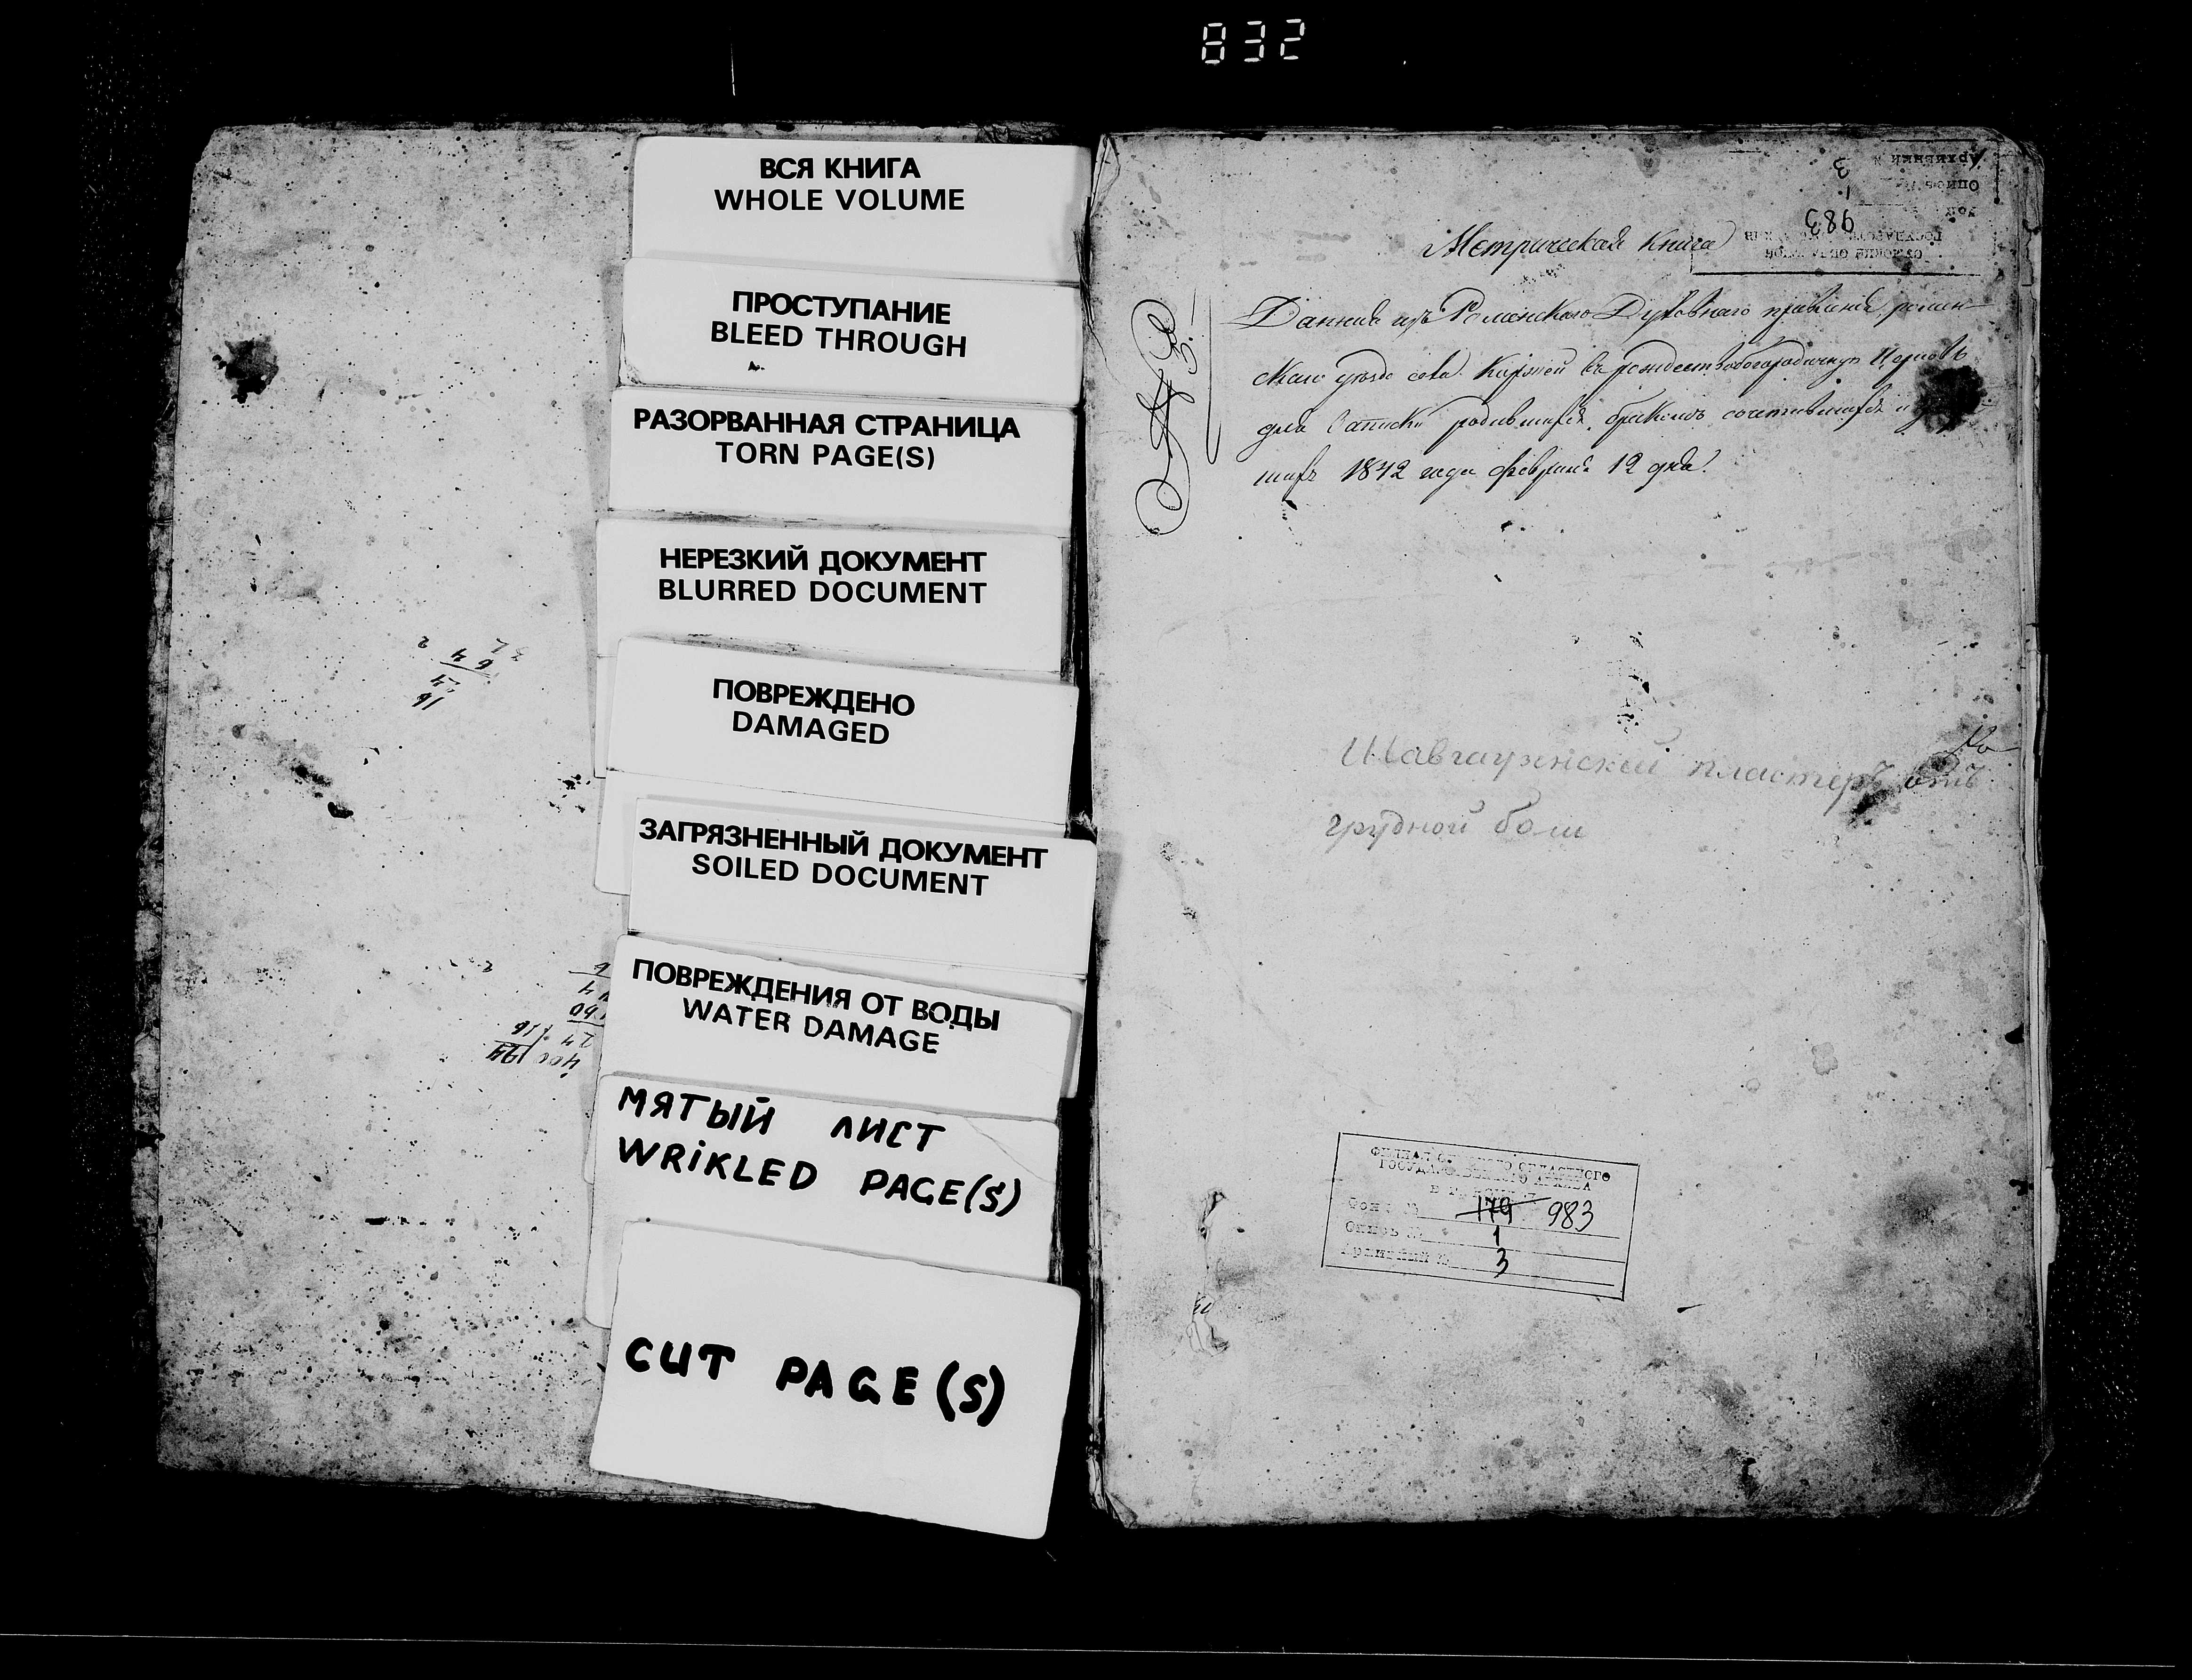 832
ВСЯ КНИГА
WHOLE VOLUME
ПРОСТУПАНИЕ
BLEED THROUGH
РАЗОРВАННАЯ СТРАНИЦА
TORN PAGE(S)
НЕРЕЗКИЙ ДОКУМЕНТ
BLURRED DOCUMENT
ПОВРЕЖДЕНО
DAMAGED
ЗАГРЯЗНЕННЫЙ ДОКУМЕНТ
SOILED DOCUMENT
ПОВРЕЖДЕНИЯ ОТ ВОДЫ
WATER DAMAGE
МЯТЫЙ ЛИСТ
WRiKLED PAGE(S)
CUT PAGE(S)
3
1
983
Метрическая Книга
Данная изъ Роменского Духовнаго правления, ромен
скаго уезда села Коржей въ рождествобогородичную Церковь
для записки родившихся, бракомъ сочетавшихся и
1842 года февраля 12 дня.
пластеръ отъ
грудной боли
ФИЛИАЛ ОБЛАСТНОГО
ГОСУДАРСТВЕННОГО АРХИВА
Фонд № 179 983
Опись № 1
Архивный № 3